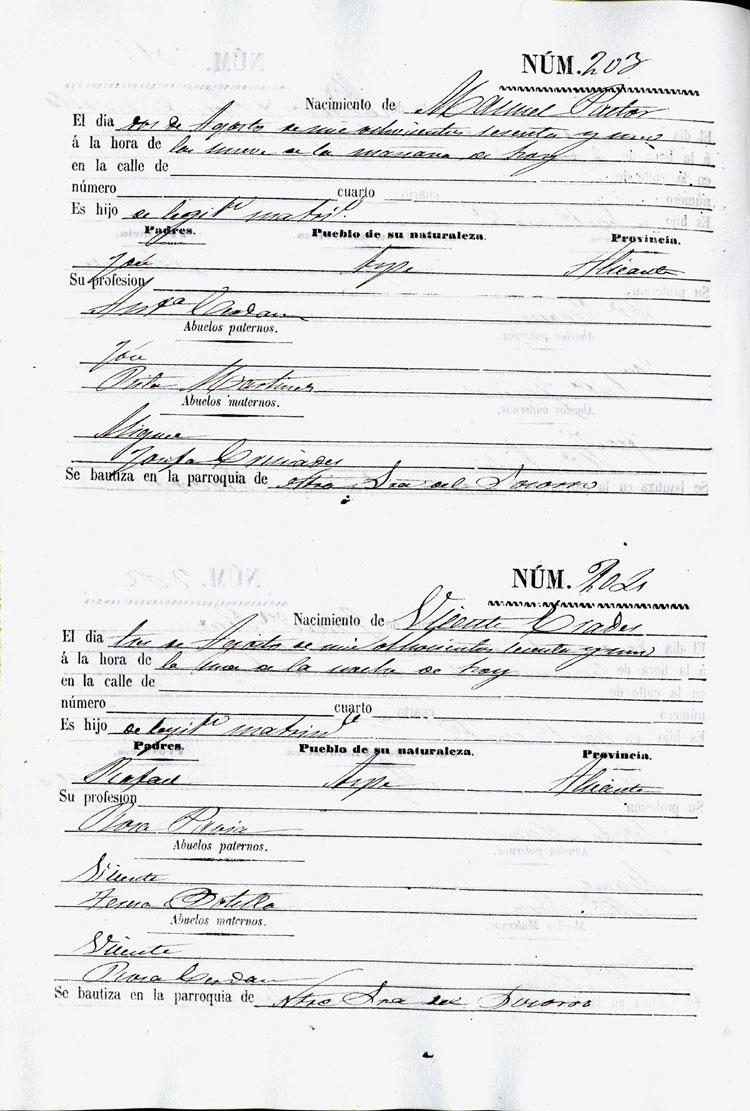 NÚM. 203
Nacimiento de Manuel Pastor
El dia dos de Agosto de mil ochocientos sesenta y uno
á la hora de las nueve de la mañana de hoy
en la calle de
número cuarto
Es hijo de legit.mo matri.o
Padres. Pueblo de su naturaleza. Provincia.
José Aspe Alicante
Su profesion
Ant.a Cerdan
Abuelos paternos.
José
Rita Martinez
Abuelos maternos.
Miguel
Josefa
Se bautiza en la parroquia de Ntra Sra del Socorro
NÚM. 204
Nacimiento de Vicente
El dia tres de Agosto de mil ochocientos sesenta y uno
á la hora de la una de la noche de hoy
en la calle de
número cuarto
Es hijo de legit.mo matrim.o
Padres. Pueblo de su naturaleza. Provincia.
Rafael Aspe Alicante
Su profesion
Rosa Pavia
Abuelos paternos.
Vicente
Teresa Botella
Abuelos maternos.
Vicente
Rosa Cerdan
Se bautiza en la parroquia de Ntra Sra del Socorro